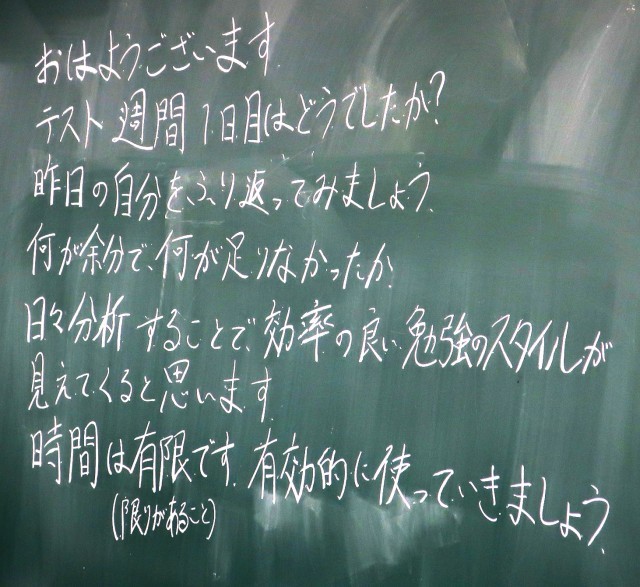 おはようございます
テスト週間1日目はどうでしたか?
昨日の自分をふり返ってみましょう。
何が余分で、何が足りなかったか
日々分析することで、効率の良い勉強のスタイルが
見えてくると思います
時間は有限です。有効的に使っていきましょう
(限りがあること)